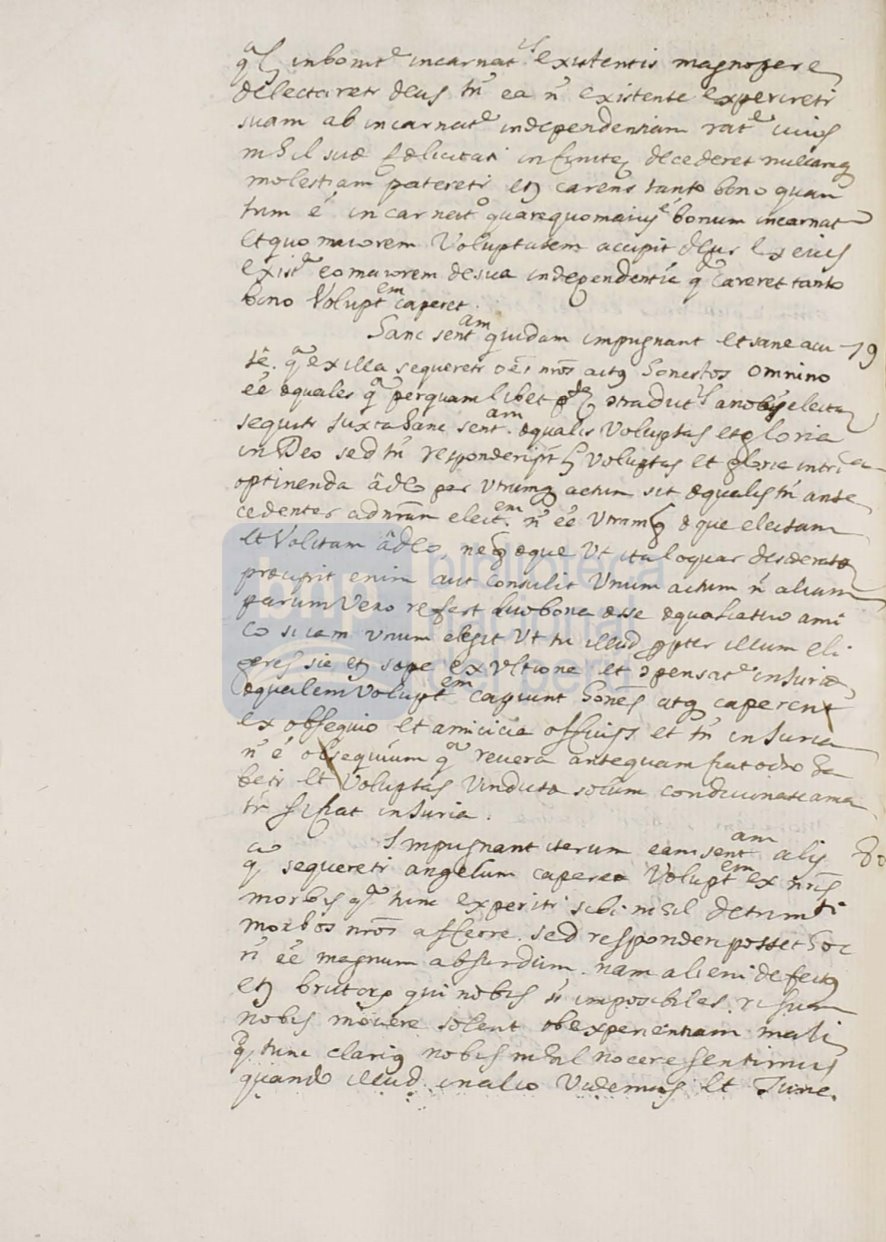 in bonit^e incarnat^is existentis magnopere
delectaretr deus tn ea n existente experiretr
suam ab incarnat^e independentiam rat^e cuius
nihil suæ felicitati infinitæ decederet nullamq
molestiam pateretr etq carens tanto bono quan
tum e incarnat^o quare quo maius e bonum incarnat
et quo maiorem Voluptatem accipit deus ex eius
exist^a eo maiorem de sua independentia q careret tanto
bono Volupt^em caperet.
Hanc sent^am quidam impugnant et sane acu 79
te. q^a ex illa sequeretr oes nros actq honestos omnino
ee æquales q^a per quamlibet a nobis electa
sequitr juxta hanc sent^am æqualis Voluptas et gloria
in Deo sed tn Voluptas et gloria intri^ca
optinenda a deo per utrumq actum sit æqualis tn ante
cedenter ad nram elect^em n ee utrumq æque electam
et Volitam a deo, neq æque ut ita loquar desiderata
præcipit enim aut consulit unum actum n alium
parum Vero refert duo bona esse æqualiatuo ami
co si iam unum elegit ut tu illud ppter illum eli
geres sic etq sæpe ex ultione et injuriæ
æqualem Volupt^em capiunt hones atq caperent
ex obsequio et amicicia et tn injuria
n e obsequium q^a revera antequam fiat odio ha
betr et Voluptas vindictæ solum ama
tr si fiat injuria.
Impugnant iterum eam sent^am alij 80
q^a sequeretr angelum capere Volupt^em ex nris
morbis q^a tunc experitr sibi nihil detrim^ti
morbos nros afferre. sed responderi posset hoc
n ee magnum absurdum. nam alieni defectq
etq brutorum qui nobis st imposibiles risum
nobis movere solent ob experientiam mali
q. tunc clariq nobis nihil nocere sentimus
quando illud in alio Videmus et Tunc.
biblioteca
nacional
del perú
bnp